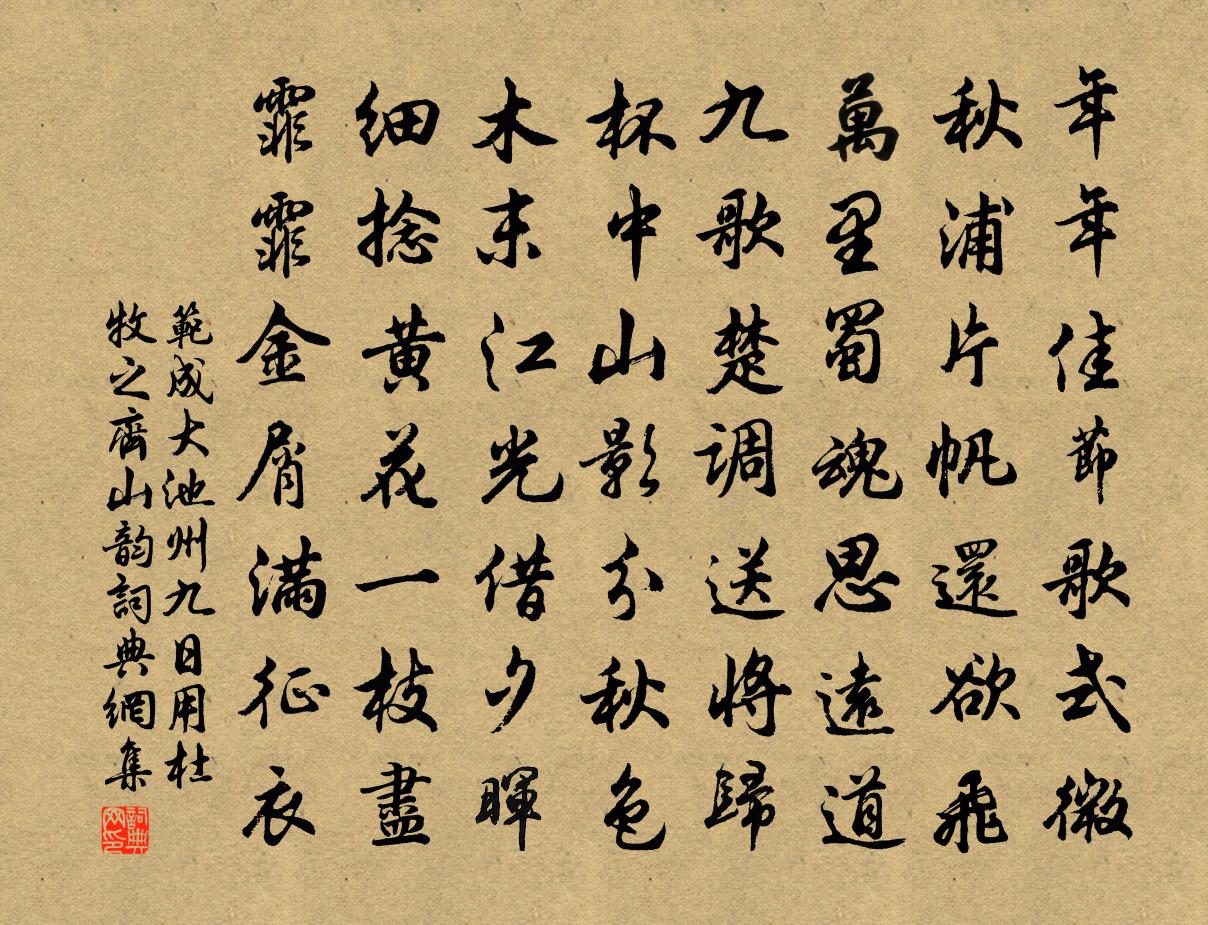 年年佳節歌式微
秋浦片帆還欲飛
萬里蜀魂思遠道
九歌楚調送將歸
杯中山影分秋色
木末江光借夕暉
细捻黄花一枝盡
霏霏金屑滿征衣
範成大池州九日用杜
牧之齊山韵詞典網集
詞典網印